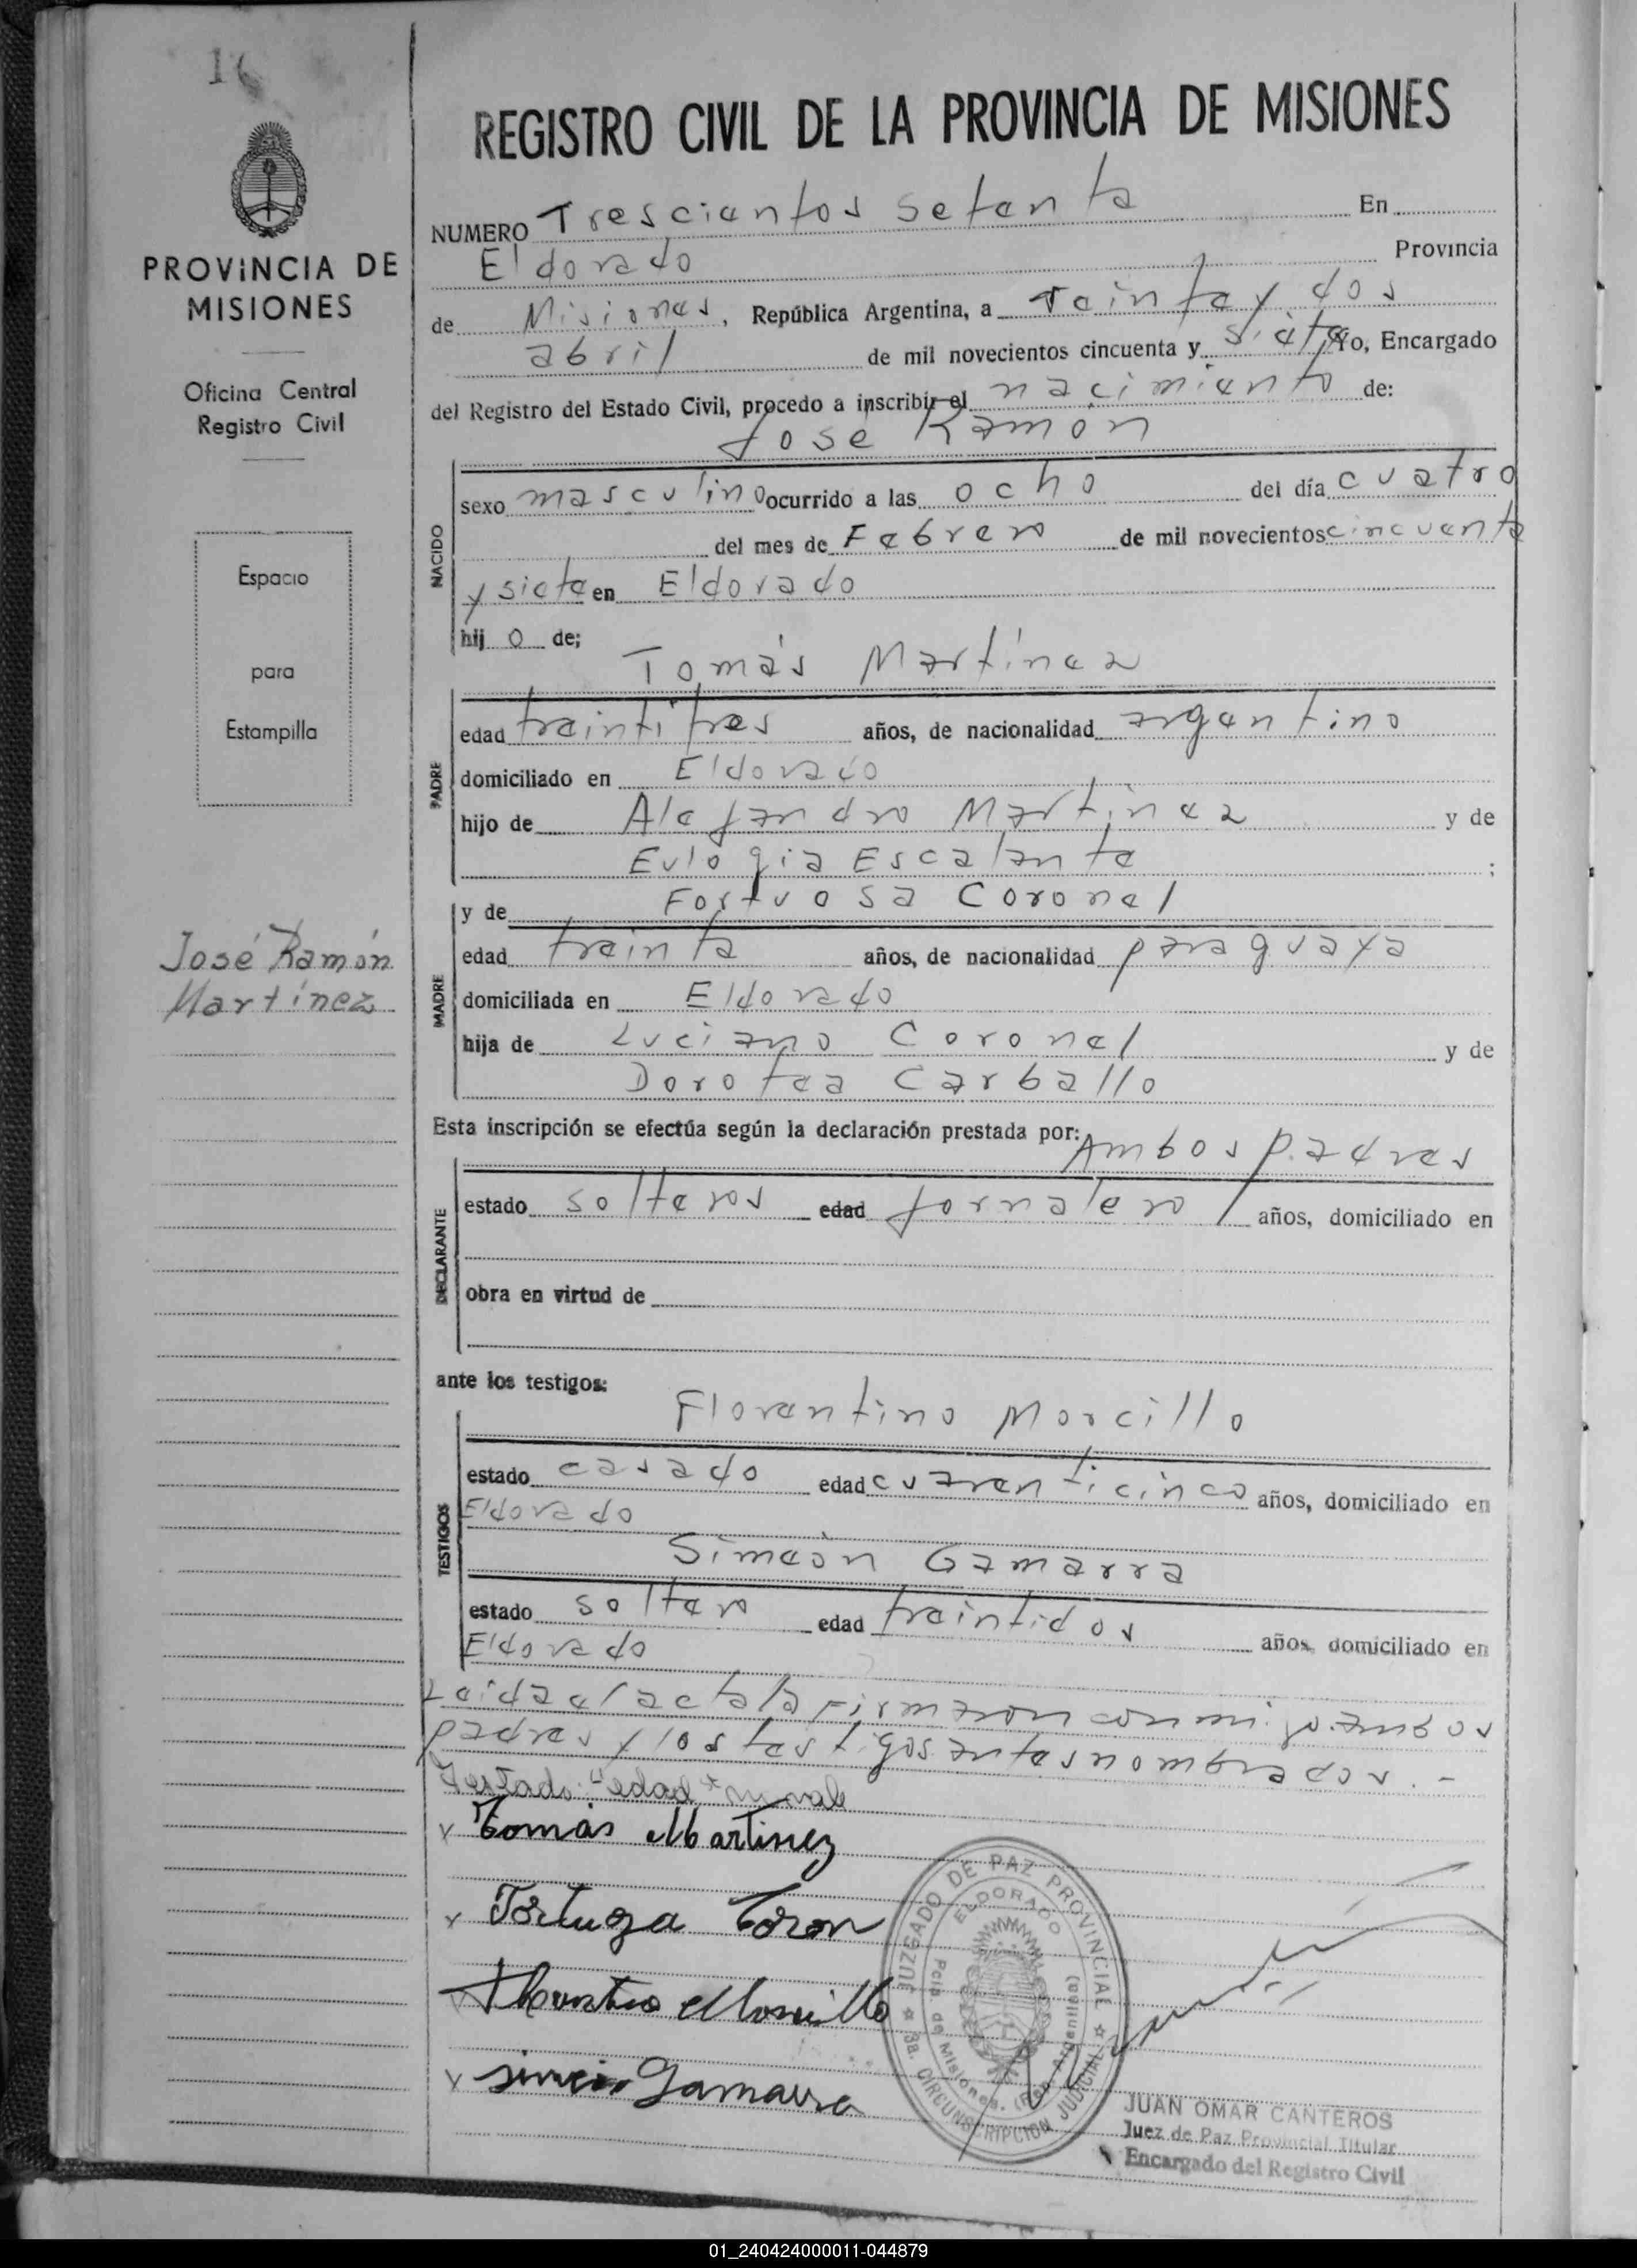 16
REGISTRO CIVIL DE LA PROVINCIA DE MISIONES
PROVINCIA DE
MISIONES
Oficina Central
Registro Civil
Espacio
para
Estampilla
José Ramón
Martínez
NUMERO Trescientos setenta En
Eldorado Provincia
de Misiones, República Argentina, a Teinta y dos
abril de mil novecientos cincuenta y siete Yo, Encargado
del Registro del Estado Civil, procedo a inscribir el nacimiento de:
Jose Ramon
NACIDO
sexo masculino ocurrido a las ocho del día cuatro
del mes de Febrero de mil novecientos cincuenta
y siete en Eldorado
hij o de;
Tomás Martínez
PADRE
edad treintitres años, de nacionalidad argentino
domiciliado en Eldorado
hijo de Alejandro Martinez y de
Eulogia Escalante ;
y de Fortuosa Coronel
MADRE
edad treinta años, de nacionalidad paraguaya
domiciliada en Eldorado
hija de Luciano Coronel y de
Dorotea Carballo
Esta inscripción se efectúa según la declaración prestada por: Ambos padres
DECLARANTE
estado solteros edad jornalero años, domiciliado en
obra en virtud de
ante los testigos:
Florentino Morcillo
TESTIGOS
estado casado edad cuarenticinco años, domiciliado en
Eldorado
Simeón Gamarra
estado soltero edad treintidos años, domiciliado en
Eldorado
Leida el acta la firmaron conmigo ambos
padres y los testigos antes nombrados. -
Testado: "edad" no vale
x Tomás Martinez
x Fortuza Coron
Morcillo
x simeon Gamarra
JUZGADO DE PAZ PROVINCIAL
ELDORADO
Pcia. de Misiones. (Rep. Argentina)
3a. CIRCUNSCRIPCION JUDICIAL
JUAN OMAR CANTEROS
Juez de Paz Provincial Titular
Encargado del Registro Civil
01_240424000011-044879